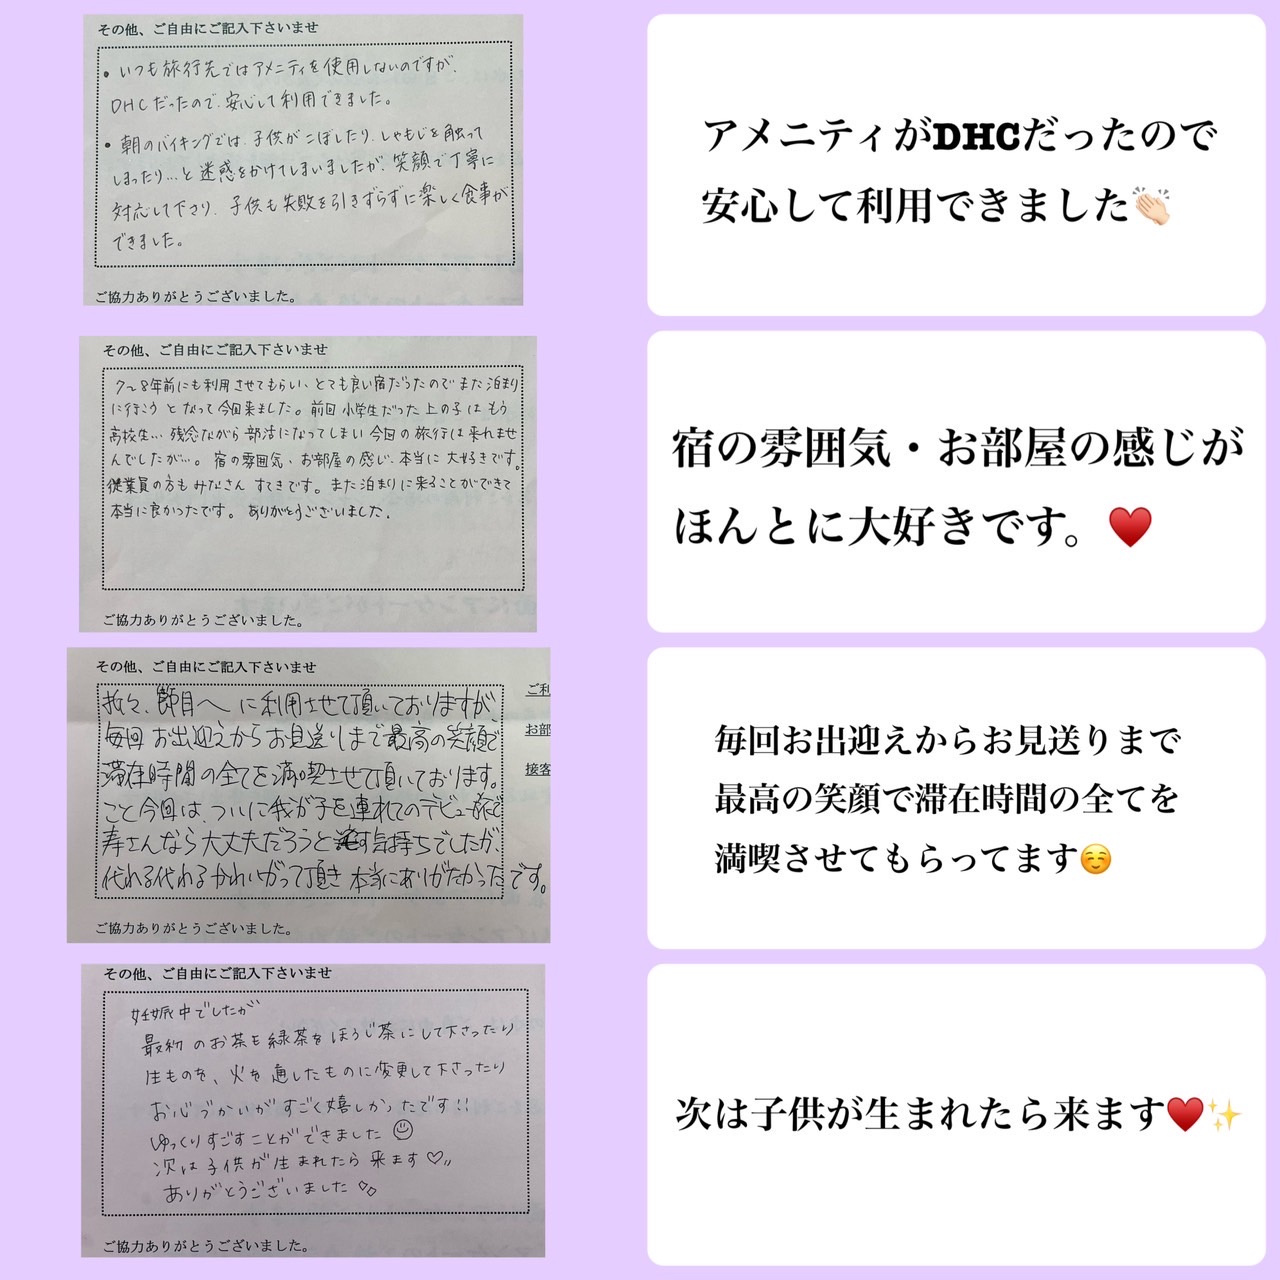 その他、ご自由にご記入下さいませ
• いつも旅行先ではアメニティを使用しないのですが、
DHCだったので、安心して利用できました。
• 朝のバイキングでは、子供がこぼしたり、しゃもじを触って
しまったり…と迷惑をかけてしまいましたが、笑顔で丁寧に
対応して下さり、子供も失敗を引きずらずに楽しく食事が
できました。
ご協力ありがとうございました。
アメニティがDHCだったので
安心して利用できました👏🏻
その他、ご自由にご記入下さいませ
7~8年前にも利用させてもらい、とても良い宿だったのでまた泊まり
に行こうとなって今回来ました。前回小学生だった上の子はもう
高校生… 残念ながら部活になってしまい今回の旅行は来れませ
んでしたが…。宿の雰囲気、お部屋の感じ、本当に大好きです。
従業員の方もみなさんすてきです。また泊まりに来ることができて
本当に良かったです。ありがとうございました。
ご協力ありがとうございました。
宿の雰囲気・お部屋の感じが
ほんとに大好きです。♥️
その他、ご自由にご記入下さいませ
折々、節目へに利用させて頂いておりますが、
毎回お出迎えからお見送りまで最高の笑顔で
滞在時間の全てを満喫させて頂いております。
ここ今回は、ついに我が子を連れてのデビュー旅で
寿さんなら大丈夫だろうと す気持ちでしたが、
代わる代わるかわいがって頂き本当にありがたかったです。
ご協力ありがとうございました。
ご利
お部
接客
毎回お出迎えからお見送りまで
最高の笑顔で滞在時間の全てを
満喫させてもらってます☺️
その他、ご自由にご記入下さいませ
妊娠中でしたが
最初のお茶を緑茶をほうじ茶にして下さったり
生ものを、火を通したものに変更して下さったり
お心づかいがすごく嬉しかったです!!
ゆっくりすごすことができました☺
次は子供が生まれたら来ます♡〃
ありがとうございました
ご協力ありがとうございました。
次は子供が生まれたら来ます♥️✨